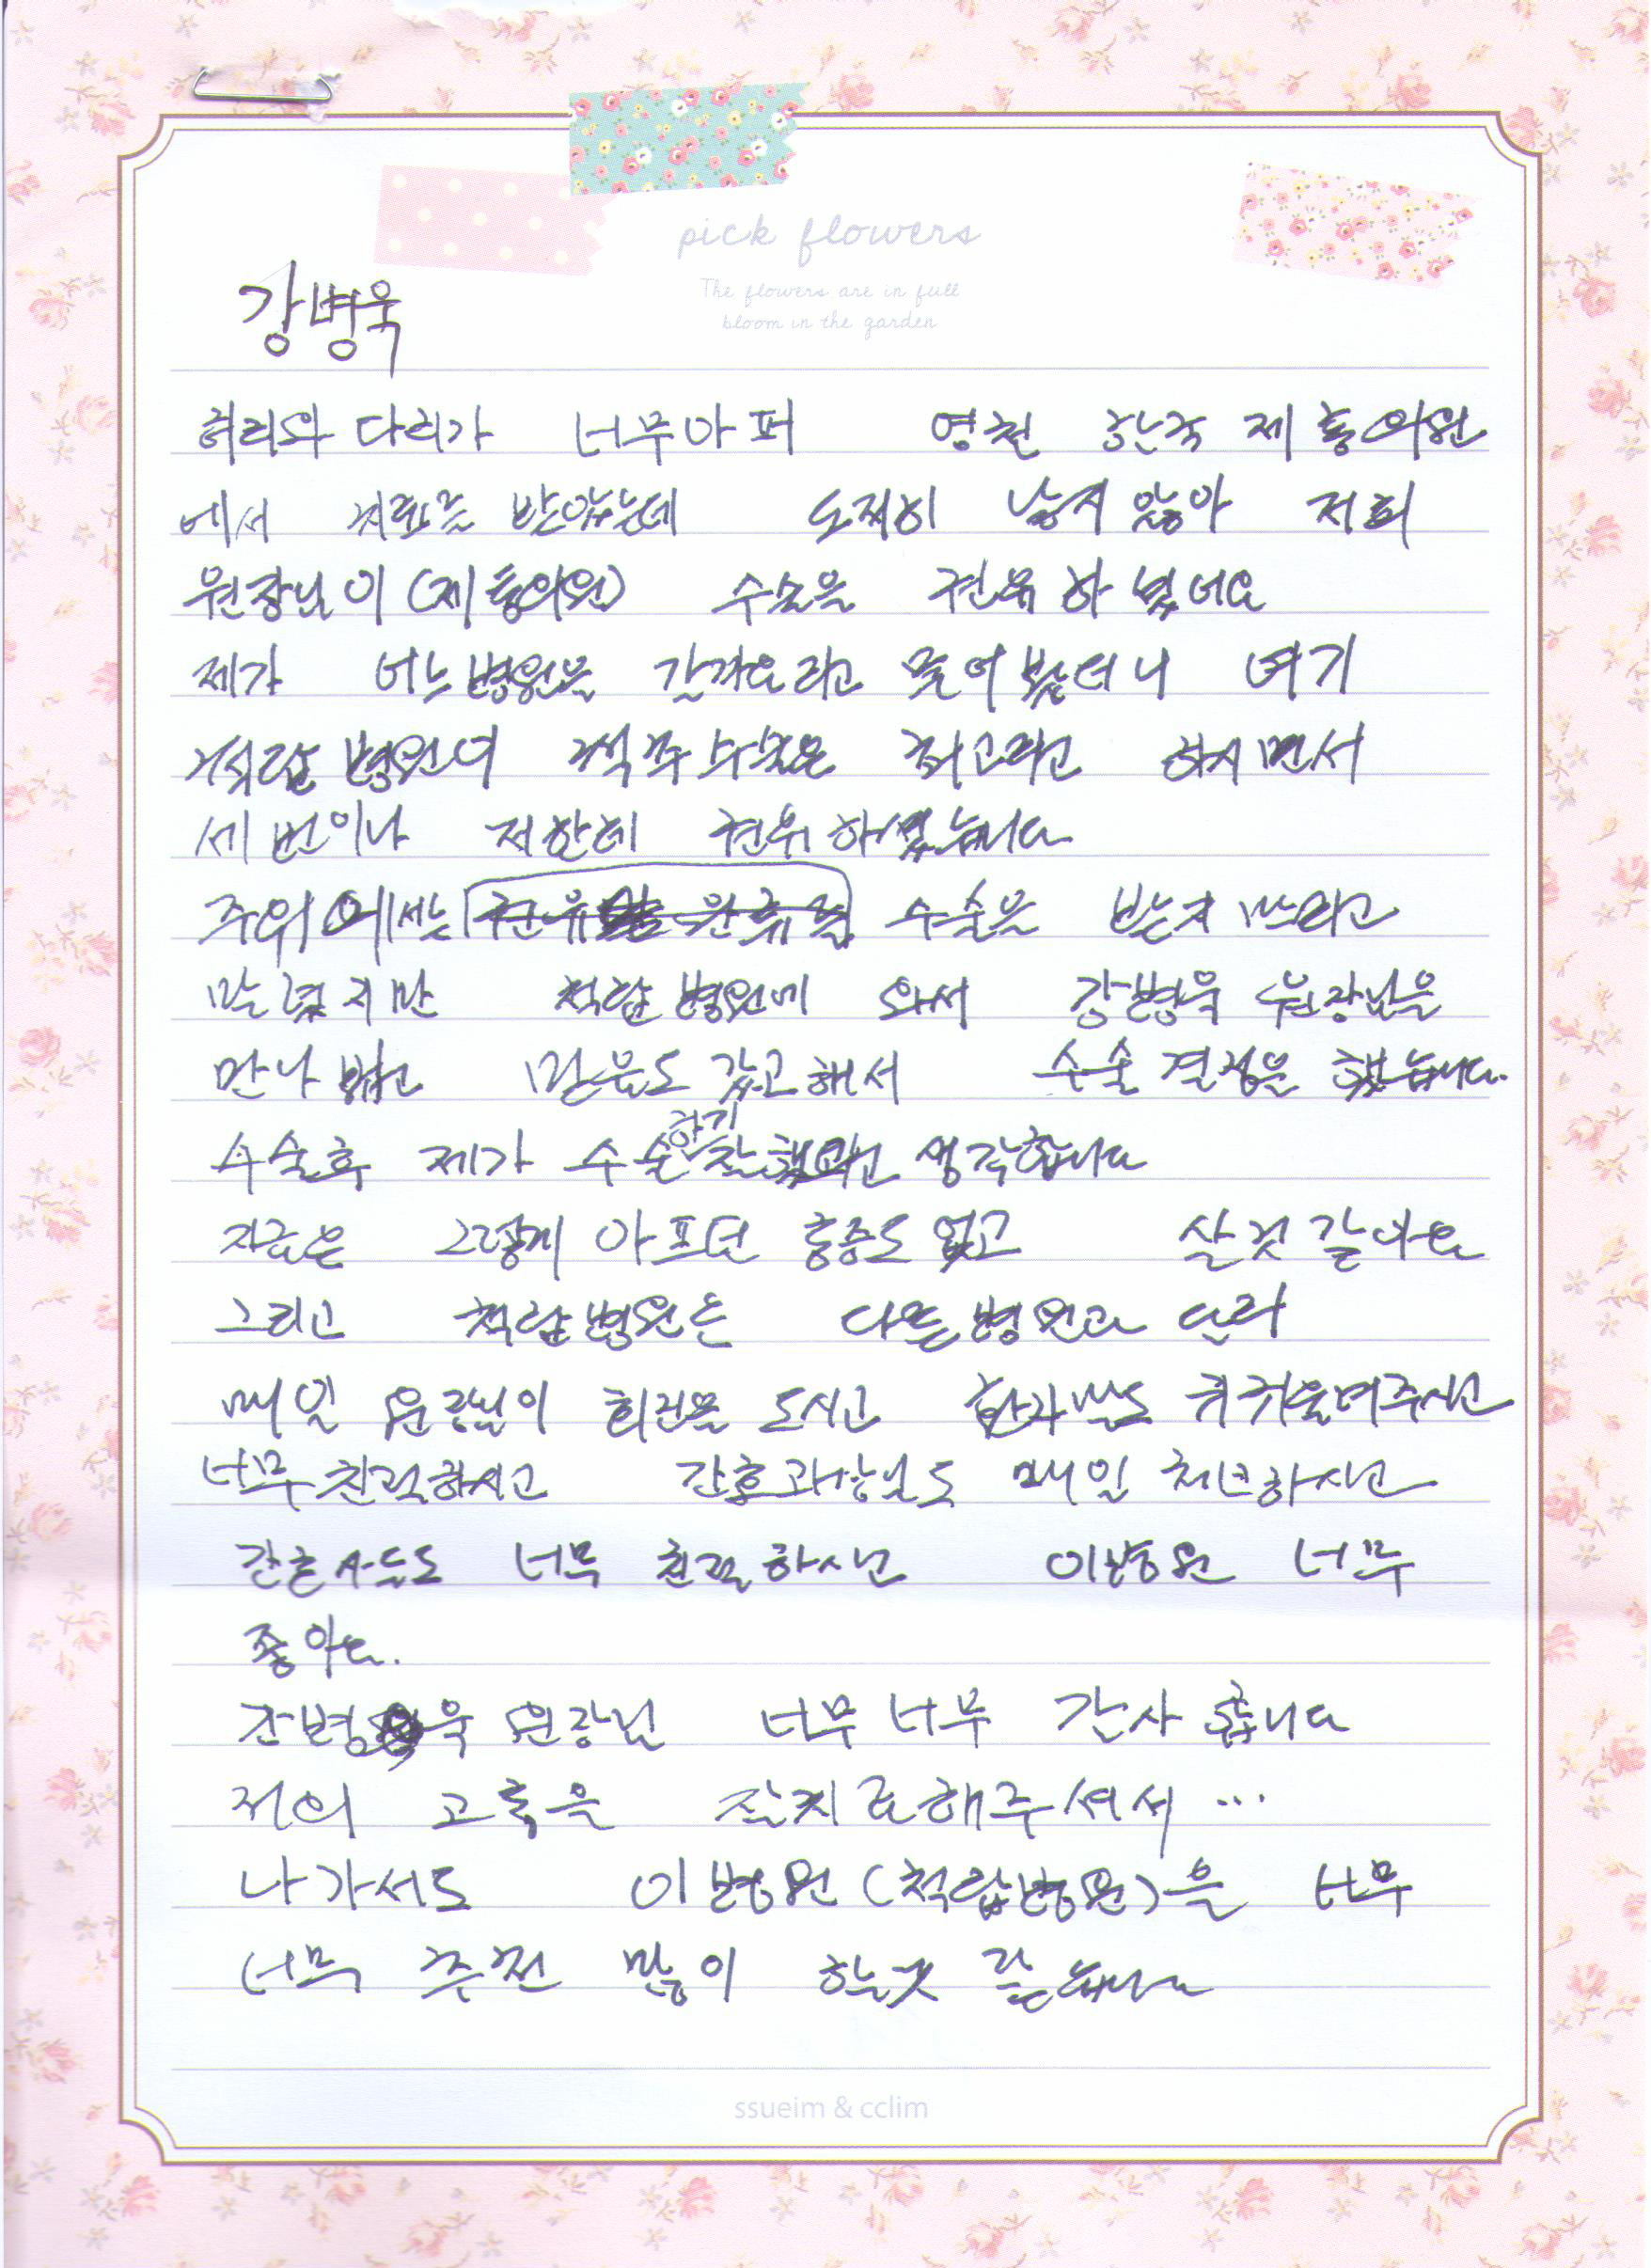 pick flowers
The flowers are in full
bloom in the garden
강병욱
허리와 다리가 너무아퍼 영천 한국 제통의원
에서 치료를 받았는데 도저히 낳지 않아 저희
원장님이 (제통의원) 수술을 권유 하셨어요
제가 어느병원을 갈까요라고 물어봤더니 여기
척탑병원이 척추수술은 최고라고 하시면서
세번이나 저한테 권유하셨습니다
주위에서는 수술을 받지 마라고
말렸지만 척탑병원에 와서 강병욱 원장님을
만나뵙고 믿음도 갖고해서 수술결정을 했습니다.
수술후 제가 수술하기 잘했다고 생각합니다
지금은 그렇게 아프던 통증도 없고 살것 같아요
그리고 척탑병원은 다른병원과 달라
매일 원장님이 회진을 도시고 환자말도 귀기울여주시고
너무친절하시고 간호과장님도 매일 체크하시고
간호사들도 너무 친절하시고 이병원 너무
좋아요.
강병욱 원장님 너무너무 감사합니다
저의 고통을 잘치료해주셔서 ...
나가서도 이병원(척탑병원)을 너무
너무 추천 많이 할것 같습니다
ssueim & cclim